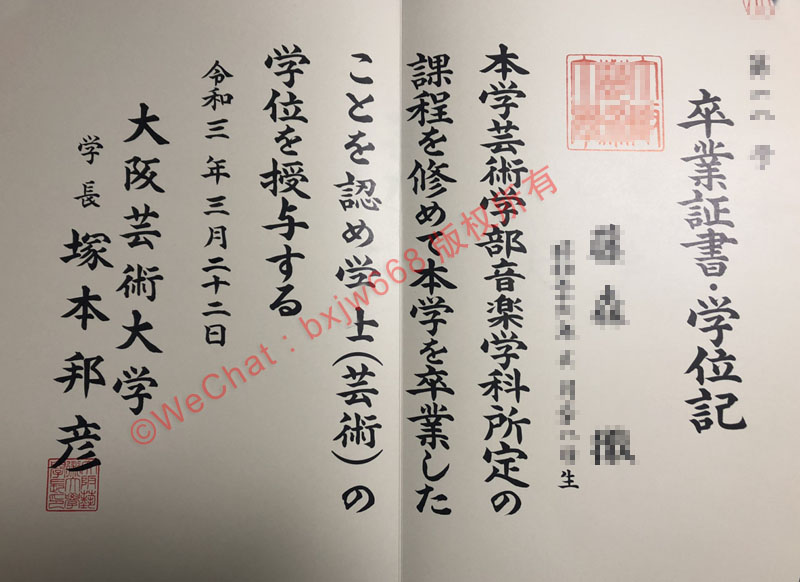 卒業証書・学位記
生
本学芸術学部音楽学科所定の
課程を修めて本学を卒業した
ことを認め学士(芸術)の
学位を授与する
令和三年三月二十二日
大阪芸術大学
学長 塚本邦彦
©WeChat:bxjw668 版权所有